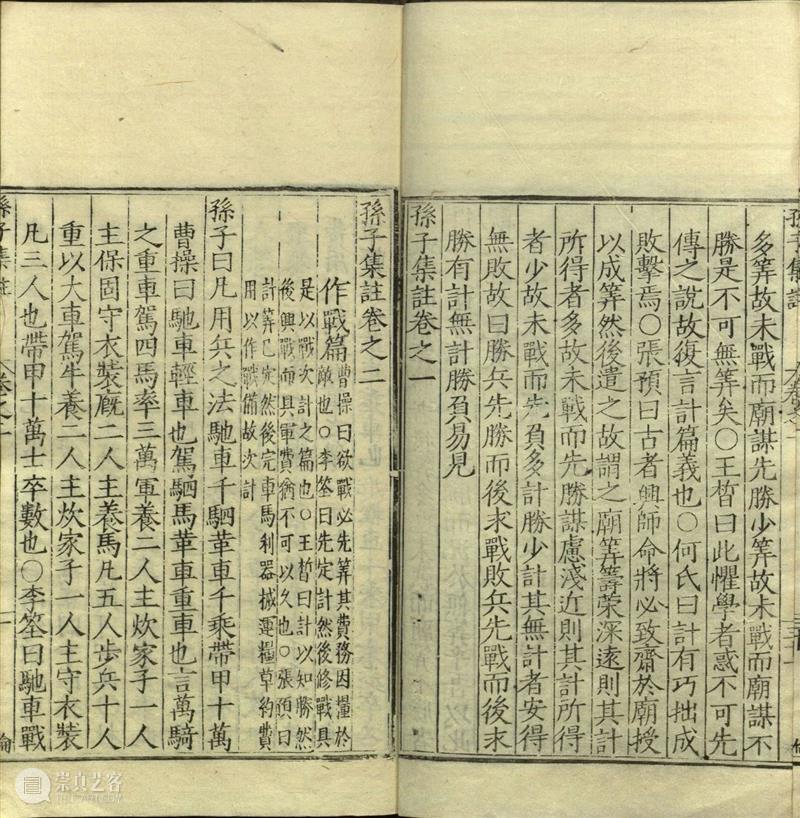 多筭故未戰而廟謀先勝少筭故未戰而廟謀不
勝是不可無筭矣○王晳曰此懼學者惑不可先
傳之說故復言計篇義也○何氏曰計有巧拙成
敗擊焉○張預曰古者興師命將必致齋於廟授
以成筭然後遣之故謂之廟筭籌榮深遠則其計
所得者多故未戰而先勝謀慮淺近則其計所得
者少故未戰而先負多計勝少計其無計者安得
無敗故曰勝兵先勝而後求戰敗兵先戰而後求
勝有計無計勝負易見
孫子集註卷之一
孫子集註卷之二
作戰篇
曹操曰欲戰必先筭其費務因糧於
敵也○李筌曰先定計然後修戰具
是以戰次計之篇也○王晳曰計以知勝然
後興戰而具軍費猶不可以久也○張預曰
計筭已定然後完車馬利器械運糧草約費
用以作戰備故次計
孫子曰凡用兵之法馳車千駟革車千乘帶甲十萬
曹操曰馳車輕車也駕駟馬革車重車也言萬騎
之重車駕四馬率三萬軍養二人主炊家子一人
主保固守衣裝廐二人主養馬凡五人步兵十人
重以大車駕牛養二人主炊家子一人主守衣裝
凡三人也帶甲十萬士卒數也○李筌曰馳車戰
孫子集註
崇真艺客